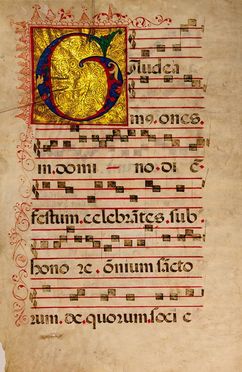 Gaudea
m9. ones.
in. domi — no. di ē
festum. celebrātes. sub.
hono re. ōnium sācto
rum. de. quorum. soci e